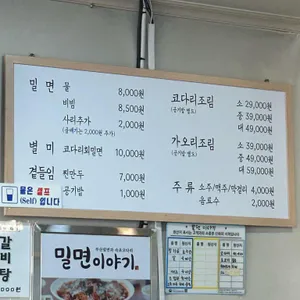 밀 면 물 8,000원
비빔 8,500원
사리추가 2,000원
(곱빼기는 2,000원 추가)
별 미 코다리회밀면 10,000원
곁들임 찐만두 7,000원
공기밥 1,000원
코다리조림 소 29,000원
(공기밥 별도) 중 39,000원
대 49,000원
가오리조림 소 39,000원
(공기밥 별도) 중 49,000원
대 59,000원
주 류 소주/맥주/막걸리 4,000원
음료수 2,000원
물은 셀프
(Self) 입니다
갈
비
탕
밀면이야기